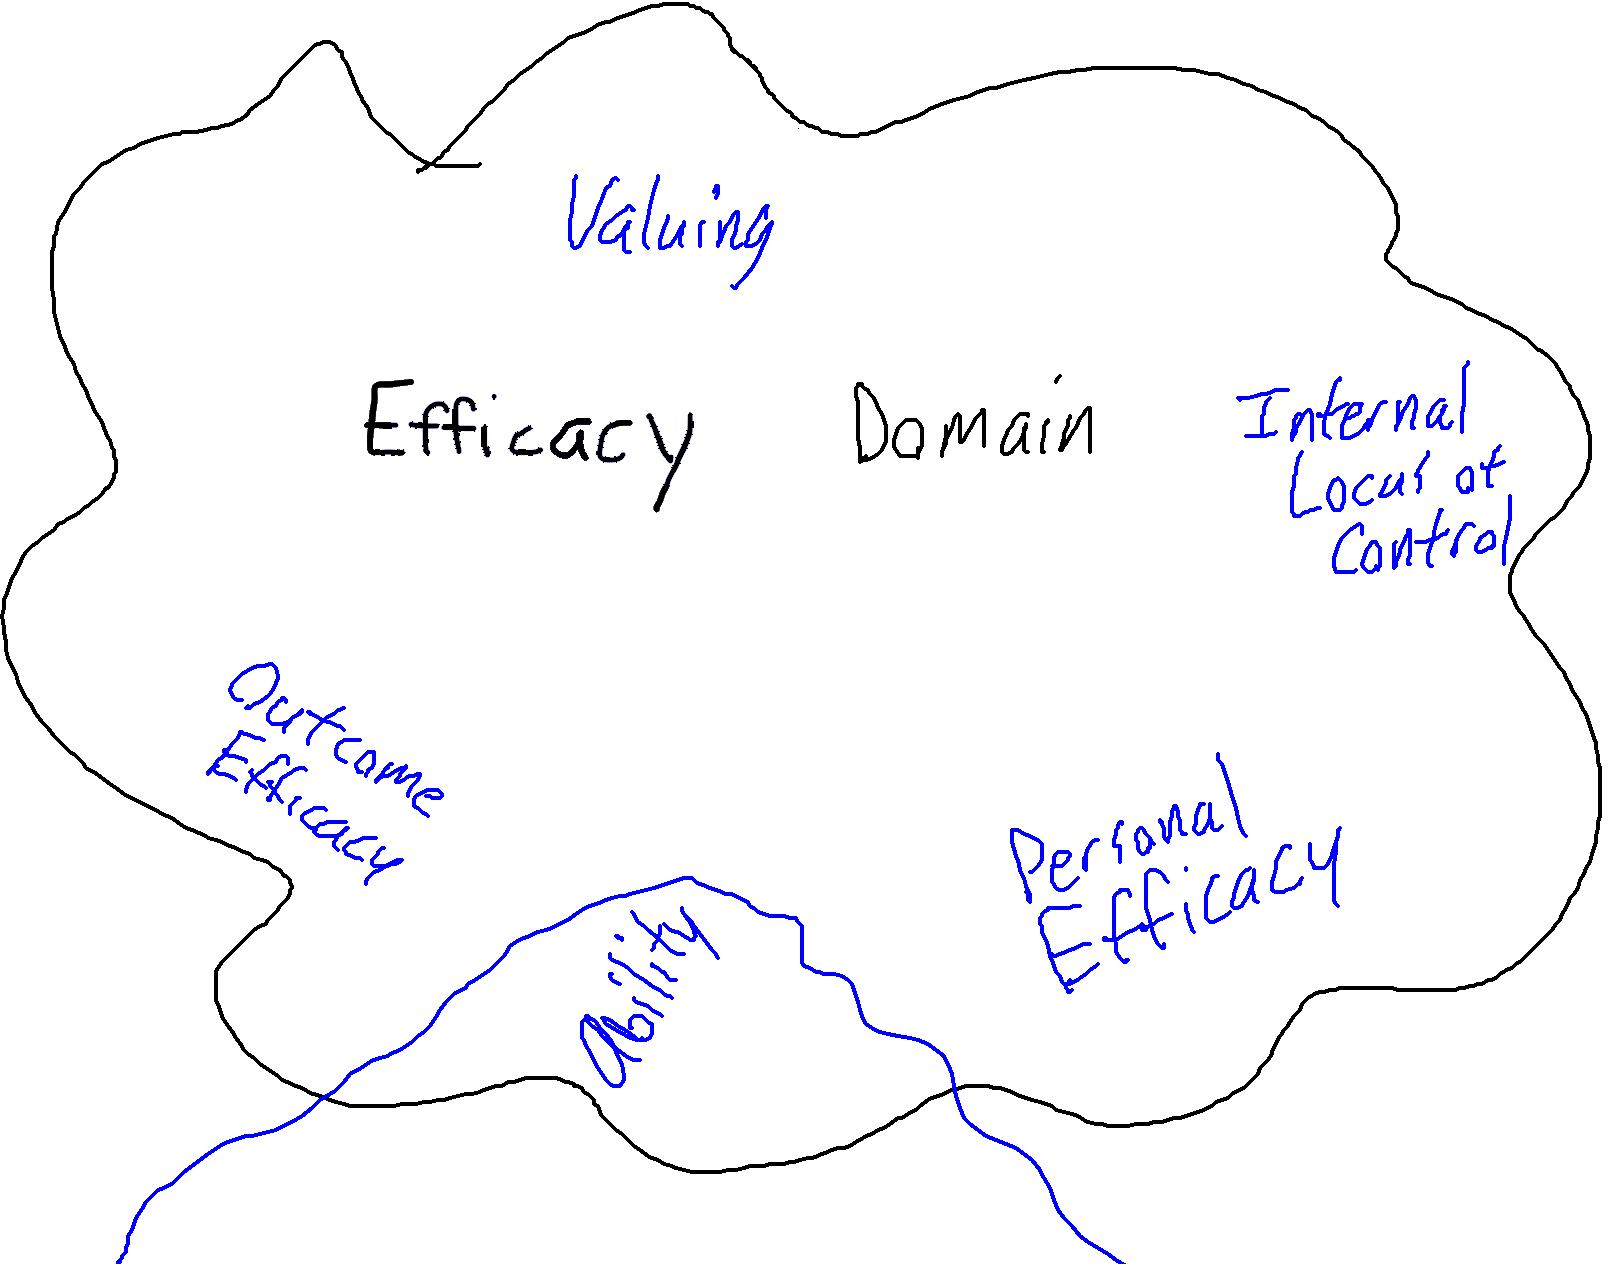 Valuing
Efficacy Domain
Internal
Locus of
Control
Outcome
Efficacy
Personal
Efficacy
Ability